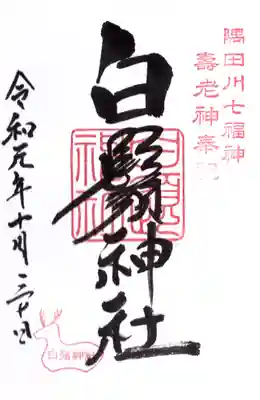 隅田川七福神
壽老神奉祀
白鬚神社
白鬚
神社
令和元年十月
白鬚神社